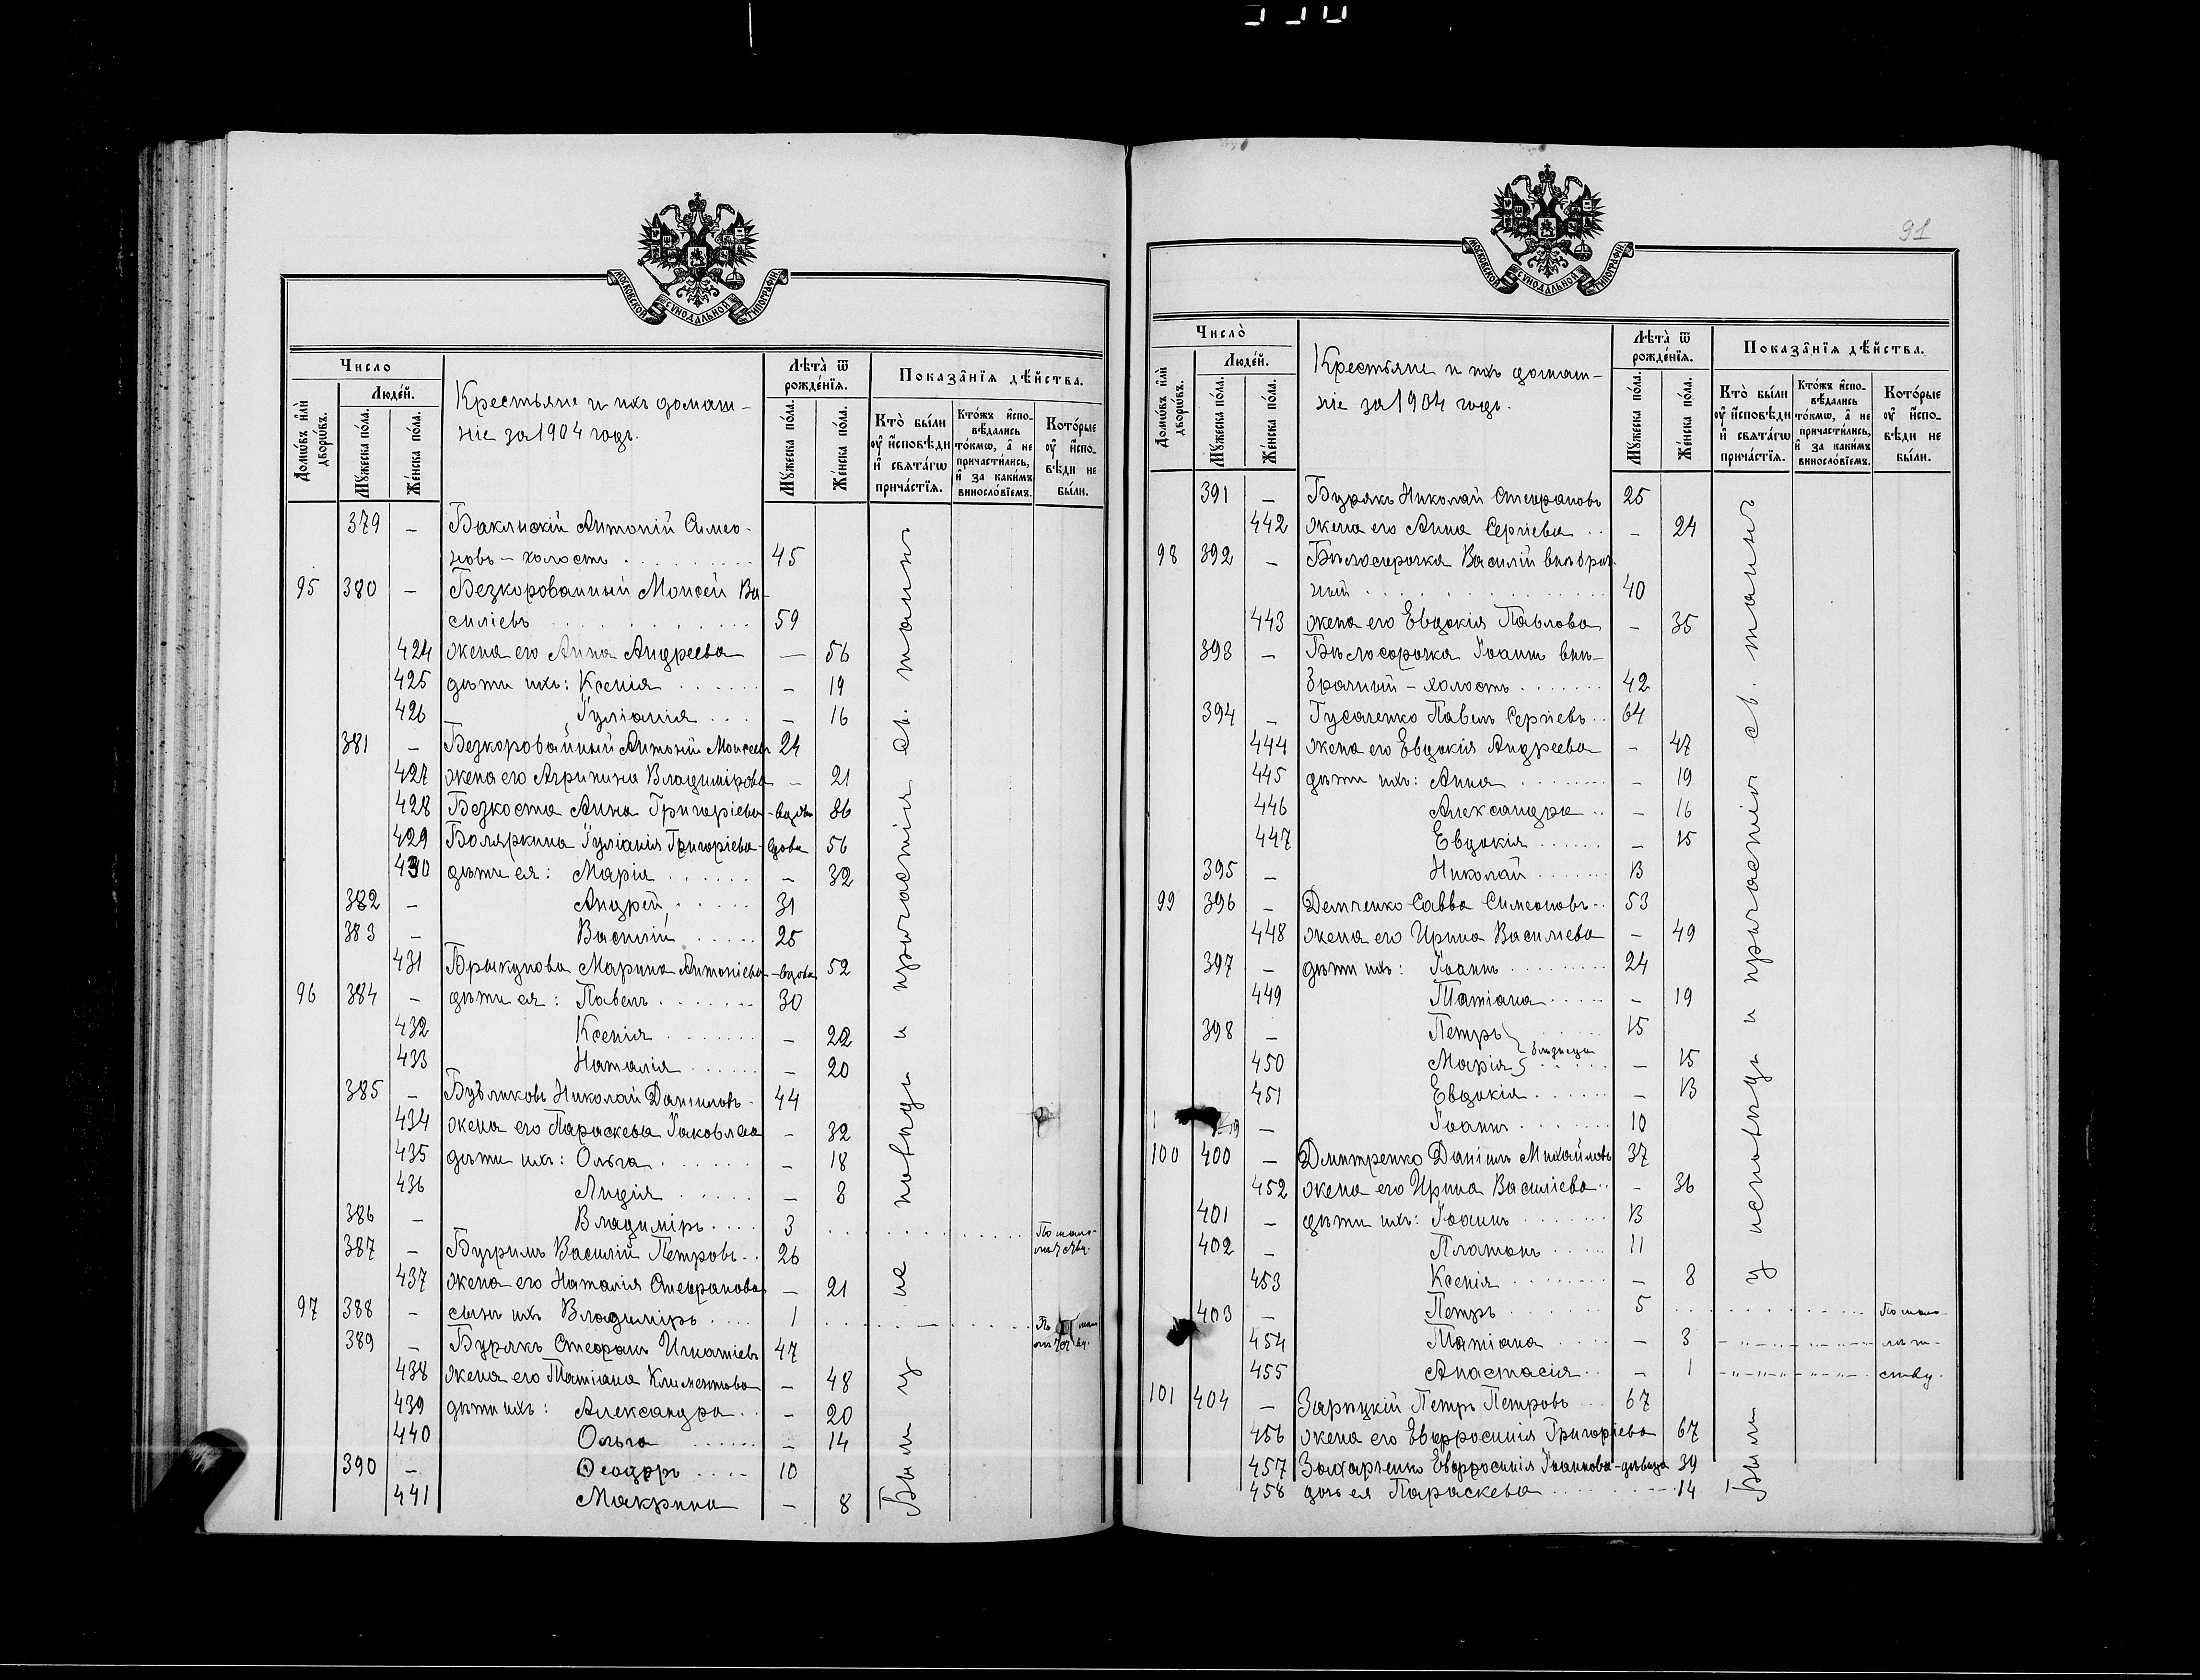 91
МОСКОВСКОЙ СѴНОДАЛЬНОЙ ТИПОГРАФІИ
Число
Домѡвъ и҆лѝ дворѡвъ.
Люде́й.
Мꙋжеска по́ла.
Же́нска по́ла.
Крестьяне и ихъ домаш-
ніе за 1904 годъ.
Лѣта̀ ѿ рожде́нїѧ.
Мꙋжеска по́ла.
Же́нска по́ла.
Показа̑нїѧ дѣ́йства.
Кто̀ бы́ли оу҆ и҆сповѣди и҆ свѧта́гѡ прича́стїѧ.
Кто́жъ и҆спо-вѣдались то́кмѡ, а҆ не причасти́лись, и҆ за каки́мъ винослові́емъ.
Кото́рые оу҆ и҆спо-вѣди не бы́ли.
379 – Баклицкій Антоній Симео-
новъ – холостъ 45
95 380 – Безкорованный Моисей Ва-
силіевъ 59
424 жена его Анна Андреева — 56
425 дѣти ихъ: Ксенія – 19
426 Іуліанія – 16
381 – Безкоровайный Антоній Моисеевъ 24
427 жена его Агрипина Владимірова – 21
428 Безкоста Анна Григоріева – вдова 86
429 Боляркина Іуліанія Григоріева – вдова 56
430 дѣти ея: Марія – 32
382 – Андрей 31
383 – Василій 25
431 Брыкунова Марина Антоніева – вдова 52
96 384 – дѣти ея: Павелъ 30
432 Ксенія – 22
433 Наталія – 20
385 – Бубликовъ Николай Даниловъ 44
434 жена его Параскева Іаковлева – 32
435 дѣти ихъ: Ольга – 18
436 Лидія – 8
386 – Владиміръ 3 По мало-
лѣтству.
387 – Бугримъ Василій Петровъ 26
437 жена его Наталія Стефанова – 21
97 388 – сынъ ихъ Владиміръ 1 По мало
389 – Бурякъ Стефанъ Игнатіевъ 47
438 жена его Татіана Климентова – 48
439 дѣти ихъ: Александра – 20
440 Ольга – 14
390 – Ѳеодоръ 10
441 Макрина – 8
Были у исповѣди и причастія св. таинъ
МОСКОВСКОЙ СѴНОДАЛЬНОЙ ТИПОГРАФІИ
Число̀
Домѡвъ и҆лѝ дворѡвъ.
Люде́й.
Мꙋжеска по́ла.
Же́нска по́ла.
Крестьяне и ихъ домаш-
ніе за 1904 годъ.
Лѣта̀ ѿ рожде́нїѧ.
Мꙋжеска по́ла.
Же́нска по́ла.
Показа̑нїѧ дѣ́йства.
Кто̀ бы́ли оу҆ и҆сповѣди и҆ свѧта́гѡ прича́стїѧ.
Кто́жъ и҆спо-вѣдались то́кмѡ, а҆ не причасти́лись, и҆ за каки́мъ винослові́емъ.
Кото́рые оу҆ и҆спо-вѣди не бы́ли.
391 – Бурякъ Николай Стефановъ 25
442 жена его Анна Сергіева – 24
98 392 – Бѣлосорочка Василій внѣбрач-
ный 40
443 жена его Евдокія Павлова – 35
393 – Бѣлосорочка Іоаннъ внѣ-
брачный – холостъ 42
394 – Гусаченко Павелъ Сергіевъ 64
444 жена его Евдокія Андреева – 47
445 дѣти ихъ: Анна – 19
446 Александра – 16
447 Евдокія – 15
395 – Николай 13
99 396 – Демченко Савва Симеоновъ 53
448 жена его Ирина Василіева – 49
397 – дѣти ихъ: Іоаннъ 24
449 Татіана – 19
398 – Петръ 15
близнецы
450 Марія – 15
451 Евдокія – 13
– Іоаннъ 10
100 400 – Дмитренко Даніилъ Михайловъ 37
452 жена его Ирина Василіева – 36
401 – дѣти ихъ: Іоаннъ 13
402 – Платонъ 11
453 Ксенія – 8
403 – Петръ 5 По мало-
454 Татіана – 3 лѣт-
455 Анастасія – 1 ству.
101 404 – Зарицкій Петръ Петровъ 67
456 жена его Евфросинія Григоріева 67
457 Захарченко Евфросинія Іоаннова – дѣвица 39
458 дочь ея Параскева 14
Были у исповѣди и причастія св. таинъ